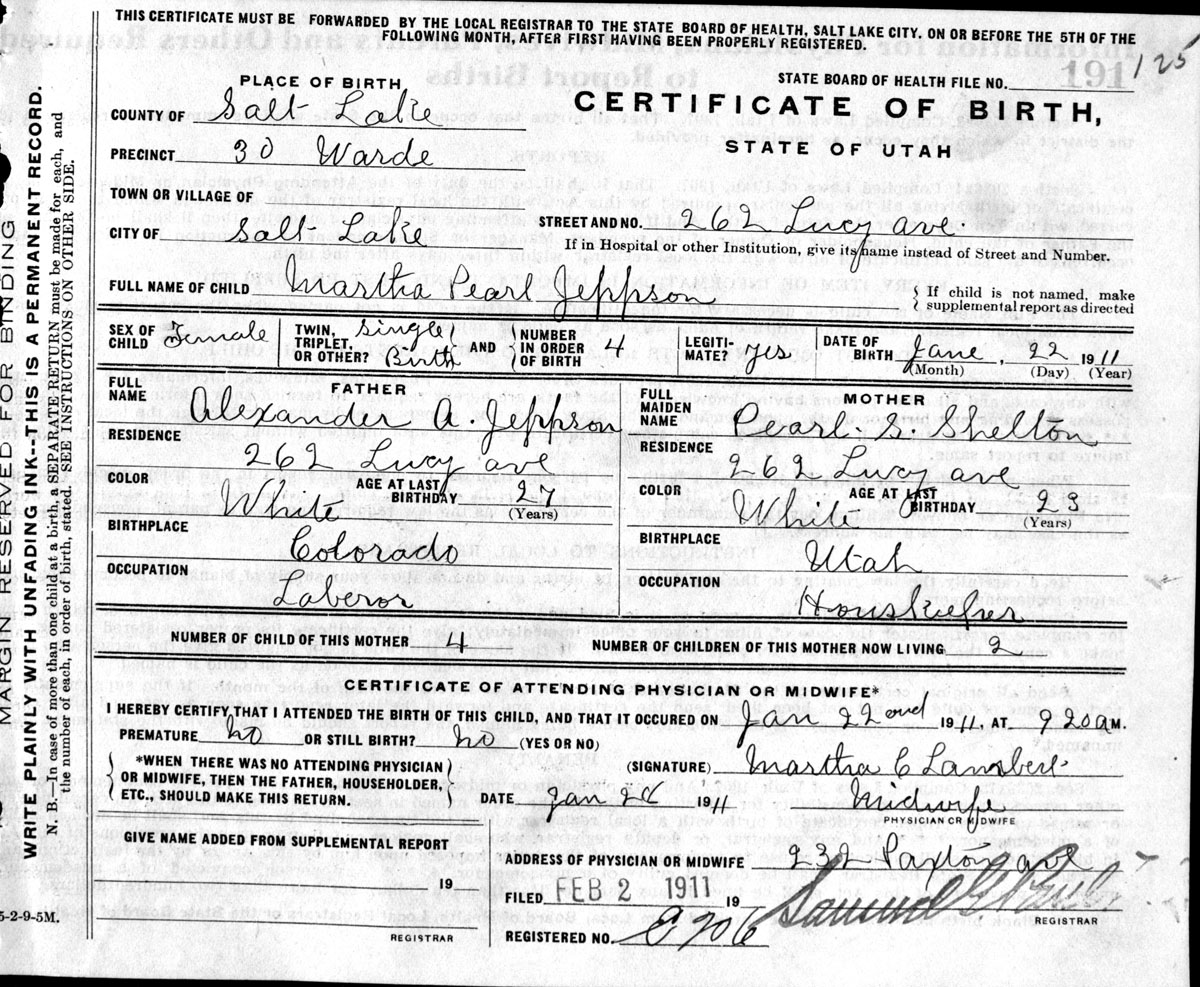 THIS CERTIFICATE MUST BE FORWARDED BY THE LOCAL REGISTRAR TO THE STATE BOARD OF HEALTH, SALT LAKE CITY. ON OR BEFORE THE 5TH OF THE
FOLLOWING MONTH, AFTER FIRST HAVING BEEN PROPERLY REGISTERED.
191
125
STATE BOARD OF HEALTH FILE NO.
PLACE OF BIRTH
CERTIFICATE OF BIRTH,
STATE OF UTAH
COUNTY OF Salt Lake
PRECINCT 30 Warde
TOWN OR VILLAGE OF
STREET AND NO. 262 Lucy ave.
CITY OF Salt Lake
If in Hospital or other Institution, give its name instead of Street and Number.
FULL NAME OF CHILD Martha Pearl Jeppson
If child is not named, make
supplemental report as directed
SEX OF CHILD Female
TWIN, TRIPLET, OR OTHER? Single Birth AND NUMBER IN ORDER OF BIRTH 4
LEGITIMATE? yes
DATE OF BIRTH Jane. 22 1911
(Month) (Day) (Year)
FATHER
FULL NAME Alexander A. Jeppson
RESIDENCE 262 Lucy ave
COLOR White AGE AT LAST BIRTHDAY 27
(Years)
BIRTHPLACE Colorado
OCCUPATION Laberor
MOTHER
FULL MAIDEN NAME Pearl. S. Shelton
RESIDENCE 262 Lucy ave
COLOR White AGE AT LAST BIRTHDAY 23
(Years)
BIRTHPLACE Utah
OCCUPATION Houskiefer
NUMBER OF CHILD OF THIS MOTHER 4
NUMBER OF CHILDREN OF THIS MOTHER NOW LIVING 2
CERTIFICATE OF ATTENDING PHYSICIAN OR MIDWIFE*
I HEREBY CERTIFY, THAT I ATTENDED THE BIRTH OF THIS CHILD, AND THAT IT OCCURED ON Jan 22 ond 1911, AT 9 20 a M.
PREMATURE No OR STILL BIRTH? No (YES OR NO)
*WHEN THERE WAS NO ATTENDING PHYSICIAN
OR MIDWIFE, THEN THE FATHER, HOUSEHOLDER,
ETC., SHOULD MAKE THIS RETURN.
(SIGNATURE) Martha C Lambert
DATE Jan 26 1911
Midwife
PHYSICIAN OR MIDWIFE
GIVE NAME ADDED FROM SUPPLEMENTAL REPORT
19
REGISTRAR
ADDRESS OF PHYSICIAN OR MIDWIFE 232 Paxton ave
FILED FEB 2 1911 19
Samuel G
REGISTRAR
REGISTERED NO. 206
MARGIN RESERVED FOR BINDING
WRITE PLAINLY WITH UNFADING INK--THIS IS A PERMANENT RECORD.
N. B.—In case of more than one child at a birth, a SEPARATE RETURN must be made for each, and
the number of each, in order of birth, stated. SEE INSTRUCTIONS ON OTHER SIDE.
5-2-9-5M.